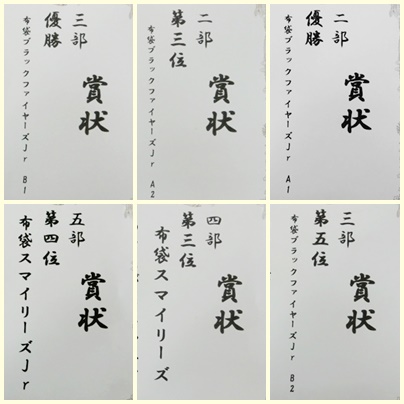 賞状
三部
優勝
布袋ブラックファイヤーズJr B1
賞状
二部
第三位
布袋ブラックファイヤーズJr A2
賞状
二部
優勝
布袋ブラックファイヤーズJr A1
賞状
五部
第四位
布袋スマイリーズJr
賞状
四部
第三位
布袋スマイリーズ
賞状
三部
第五位
布袋ブラックファイヤーズJr B2